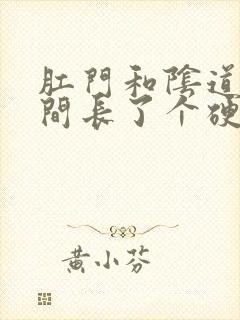 肛門和陰道
間長了个硬
黄小芬